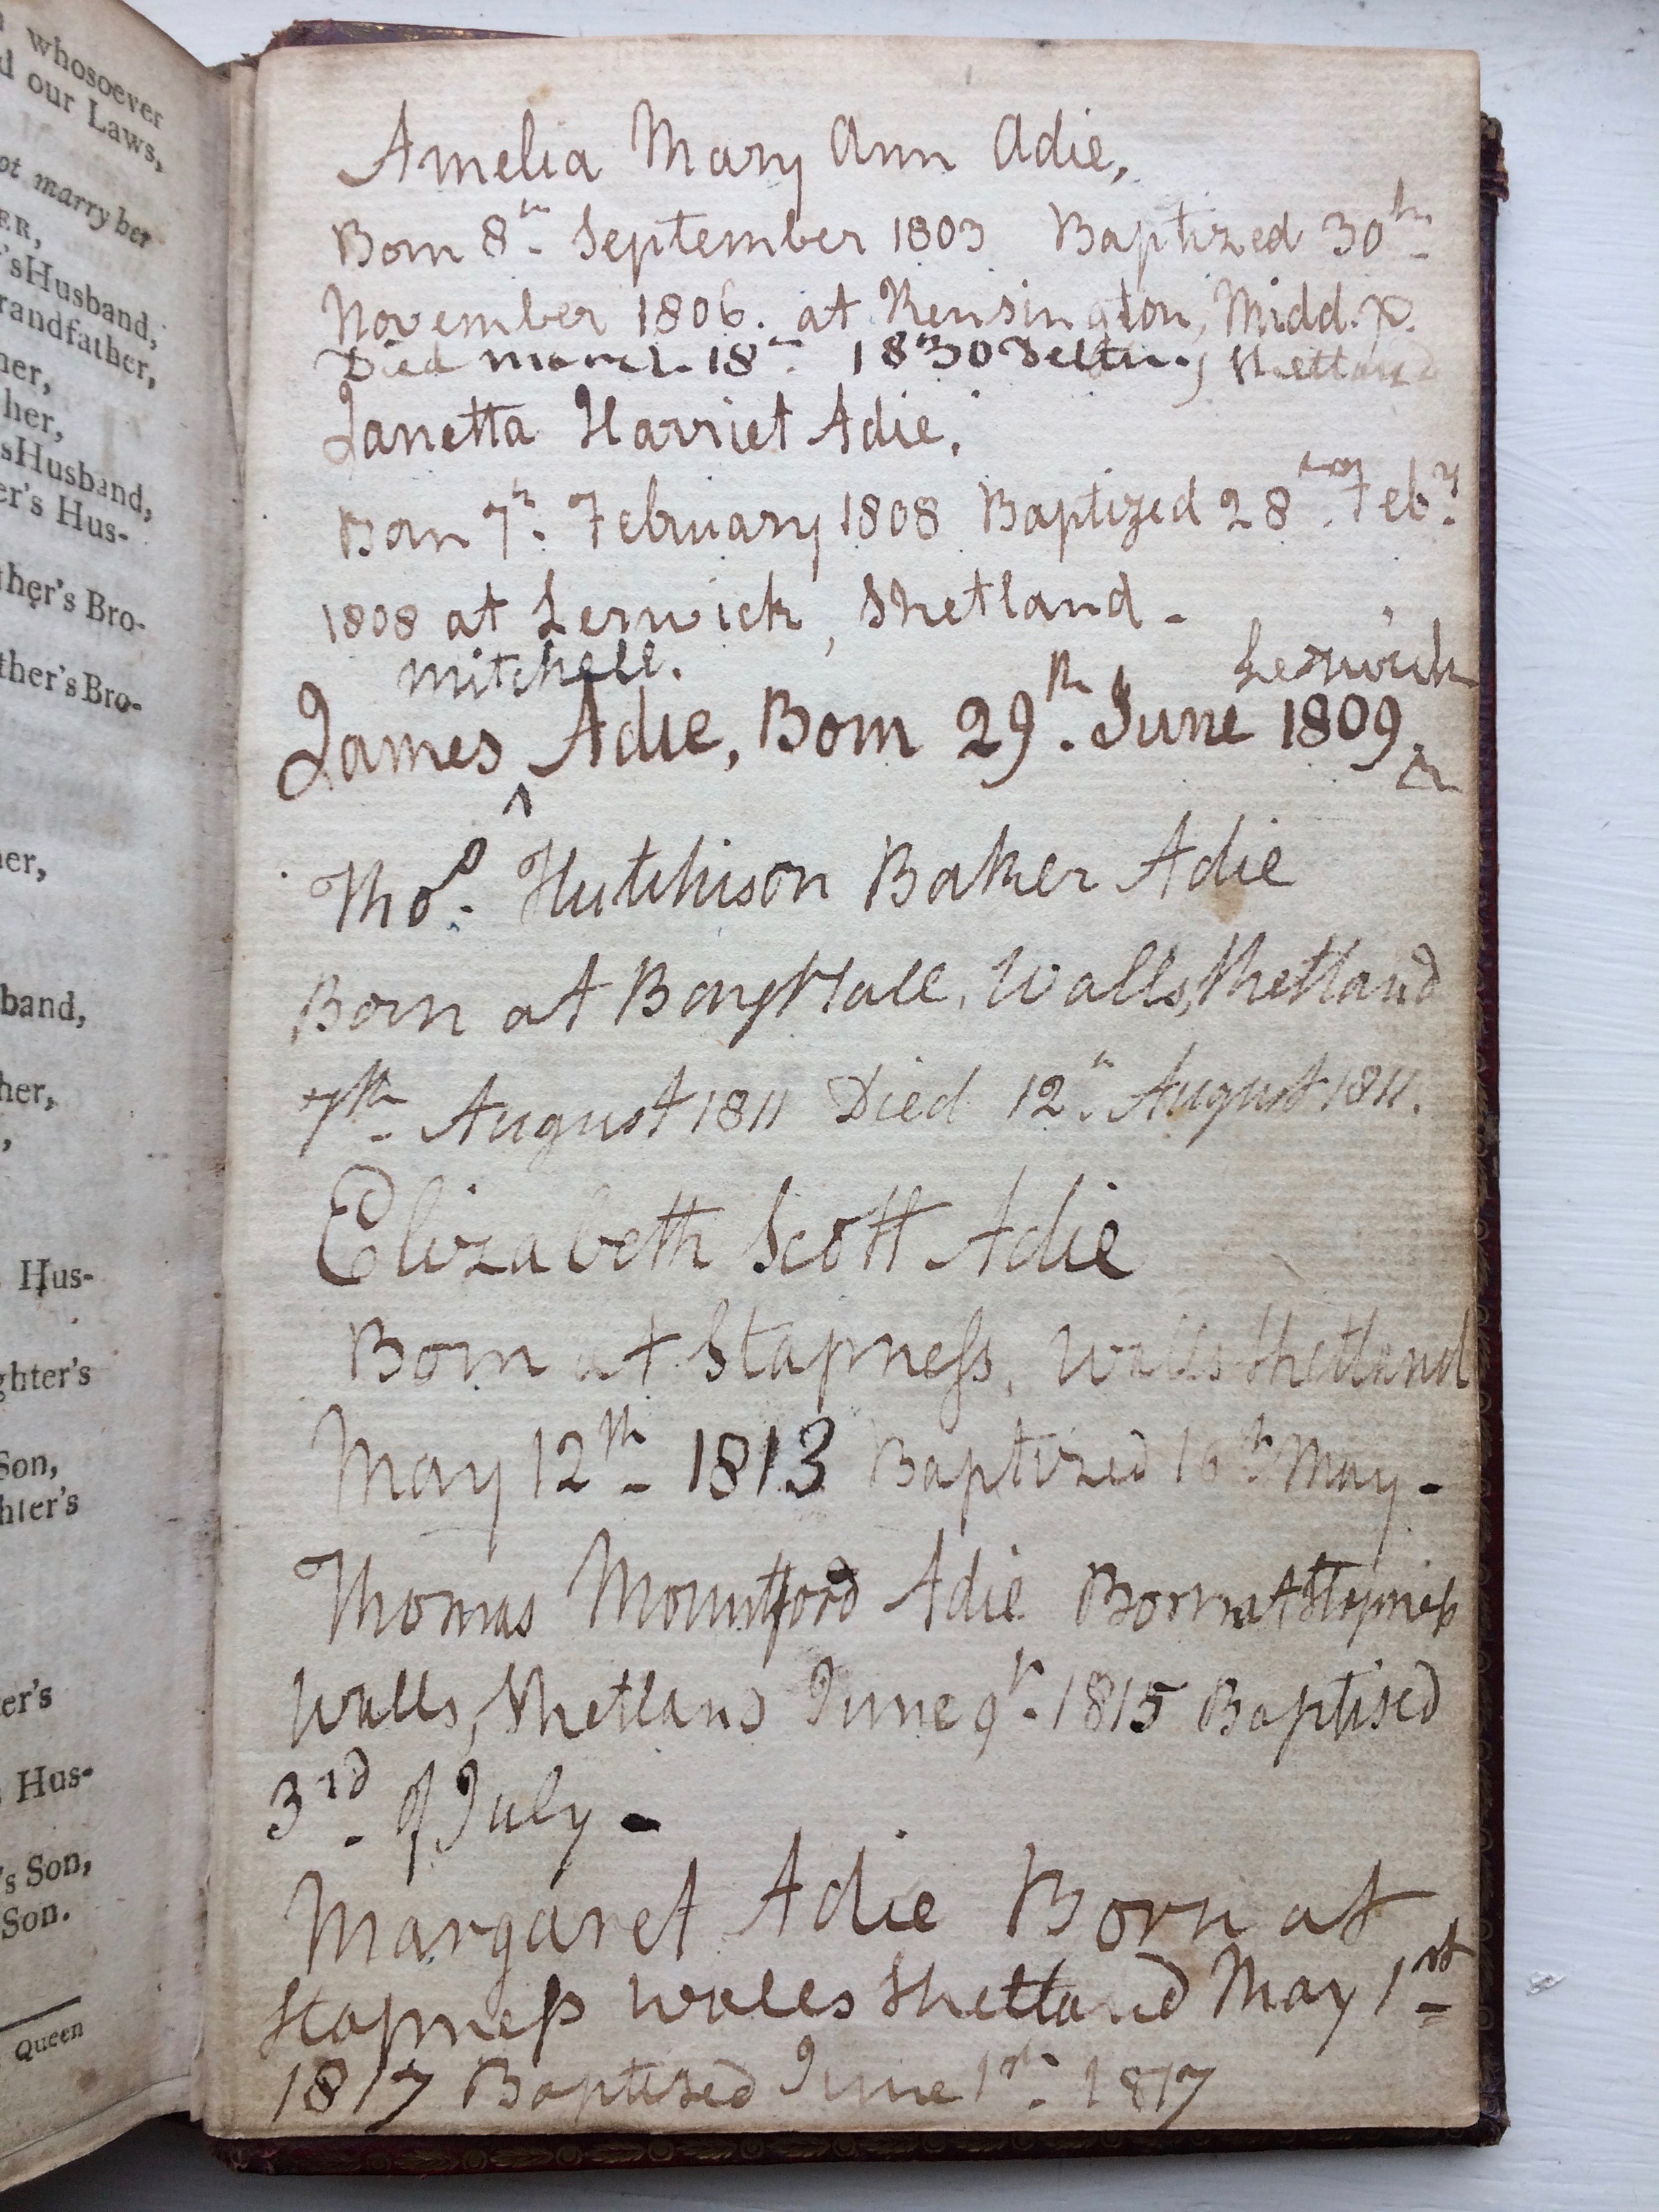 whosoever
d our Laws,
ot marry her
ER,
's Husband,
randfather,
her,
her,
sHusband,
er's Hus-
her's Bro-
ther's Bro-
er,
band,
her,
Hus-
ghter's
Son,
hter's
er's
Hus-
's Son,
Son.
Queen
Amelia Mary Ann Adie,
Born 8th September 1803 Baptized 30th
November 1806. at Kensington, Midd.x.
Died March 18th 1830 Delting Shetland
Janetta Harriet Adie.
Born 7th February 1808 Baptized 28th Feby.
1808 at Lerwick, Shetland -
mitchell. Lerwick
James ^ Adie, Born 29th. June 1809.
Thos. Hutchison Baker Adie
Born at Bayhall, Walls, Shetland
7th August 1811 Died 12th August 1811.
Elizabeth Scott Adie
Born at Stapness, Walls Shetland
May 12th 1813 Baptized 16th May -
Thomas Mountford Adie Born at Stapness
Walls, Shetland June 9th. 1815 Baptised
3rd of July -
Margaret Adie Born at
Stapness Walls Shetland May 1st
1817 Baptized June 1st. 1817